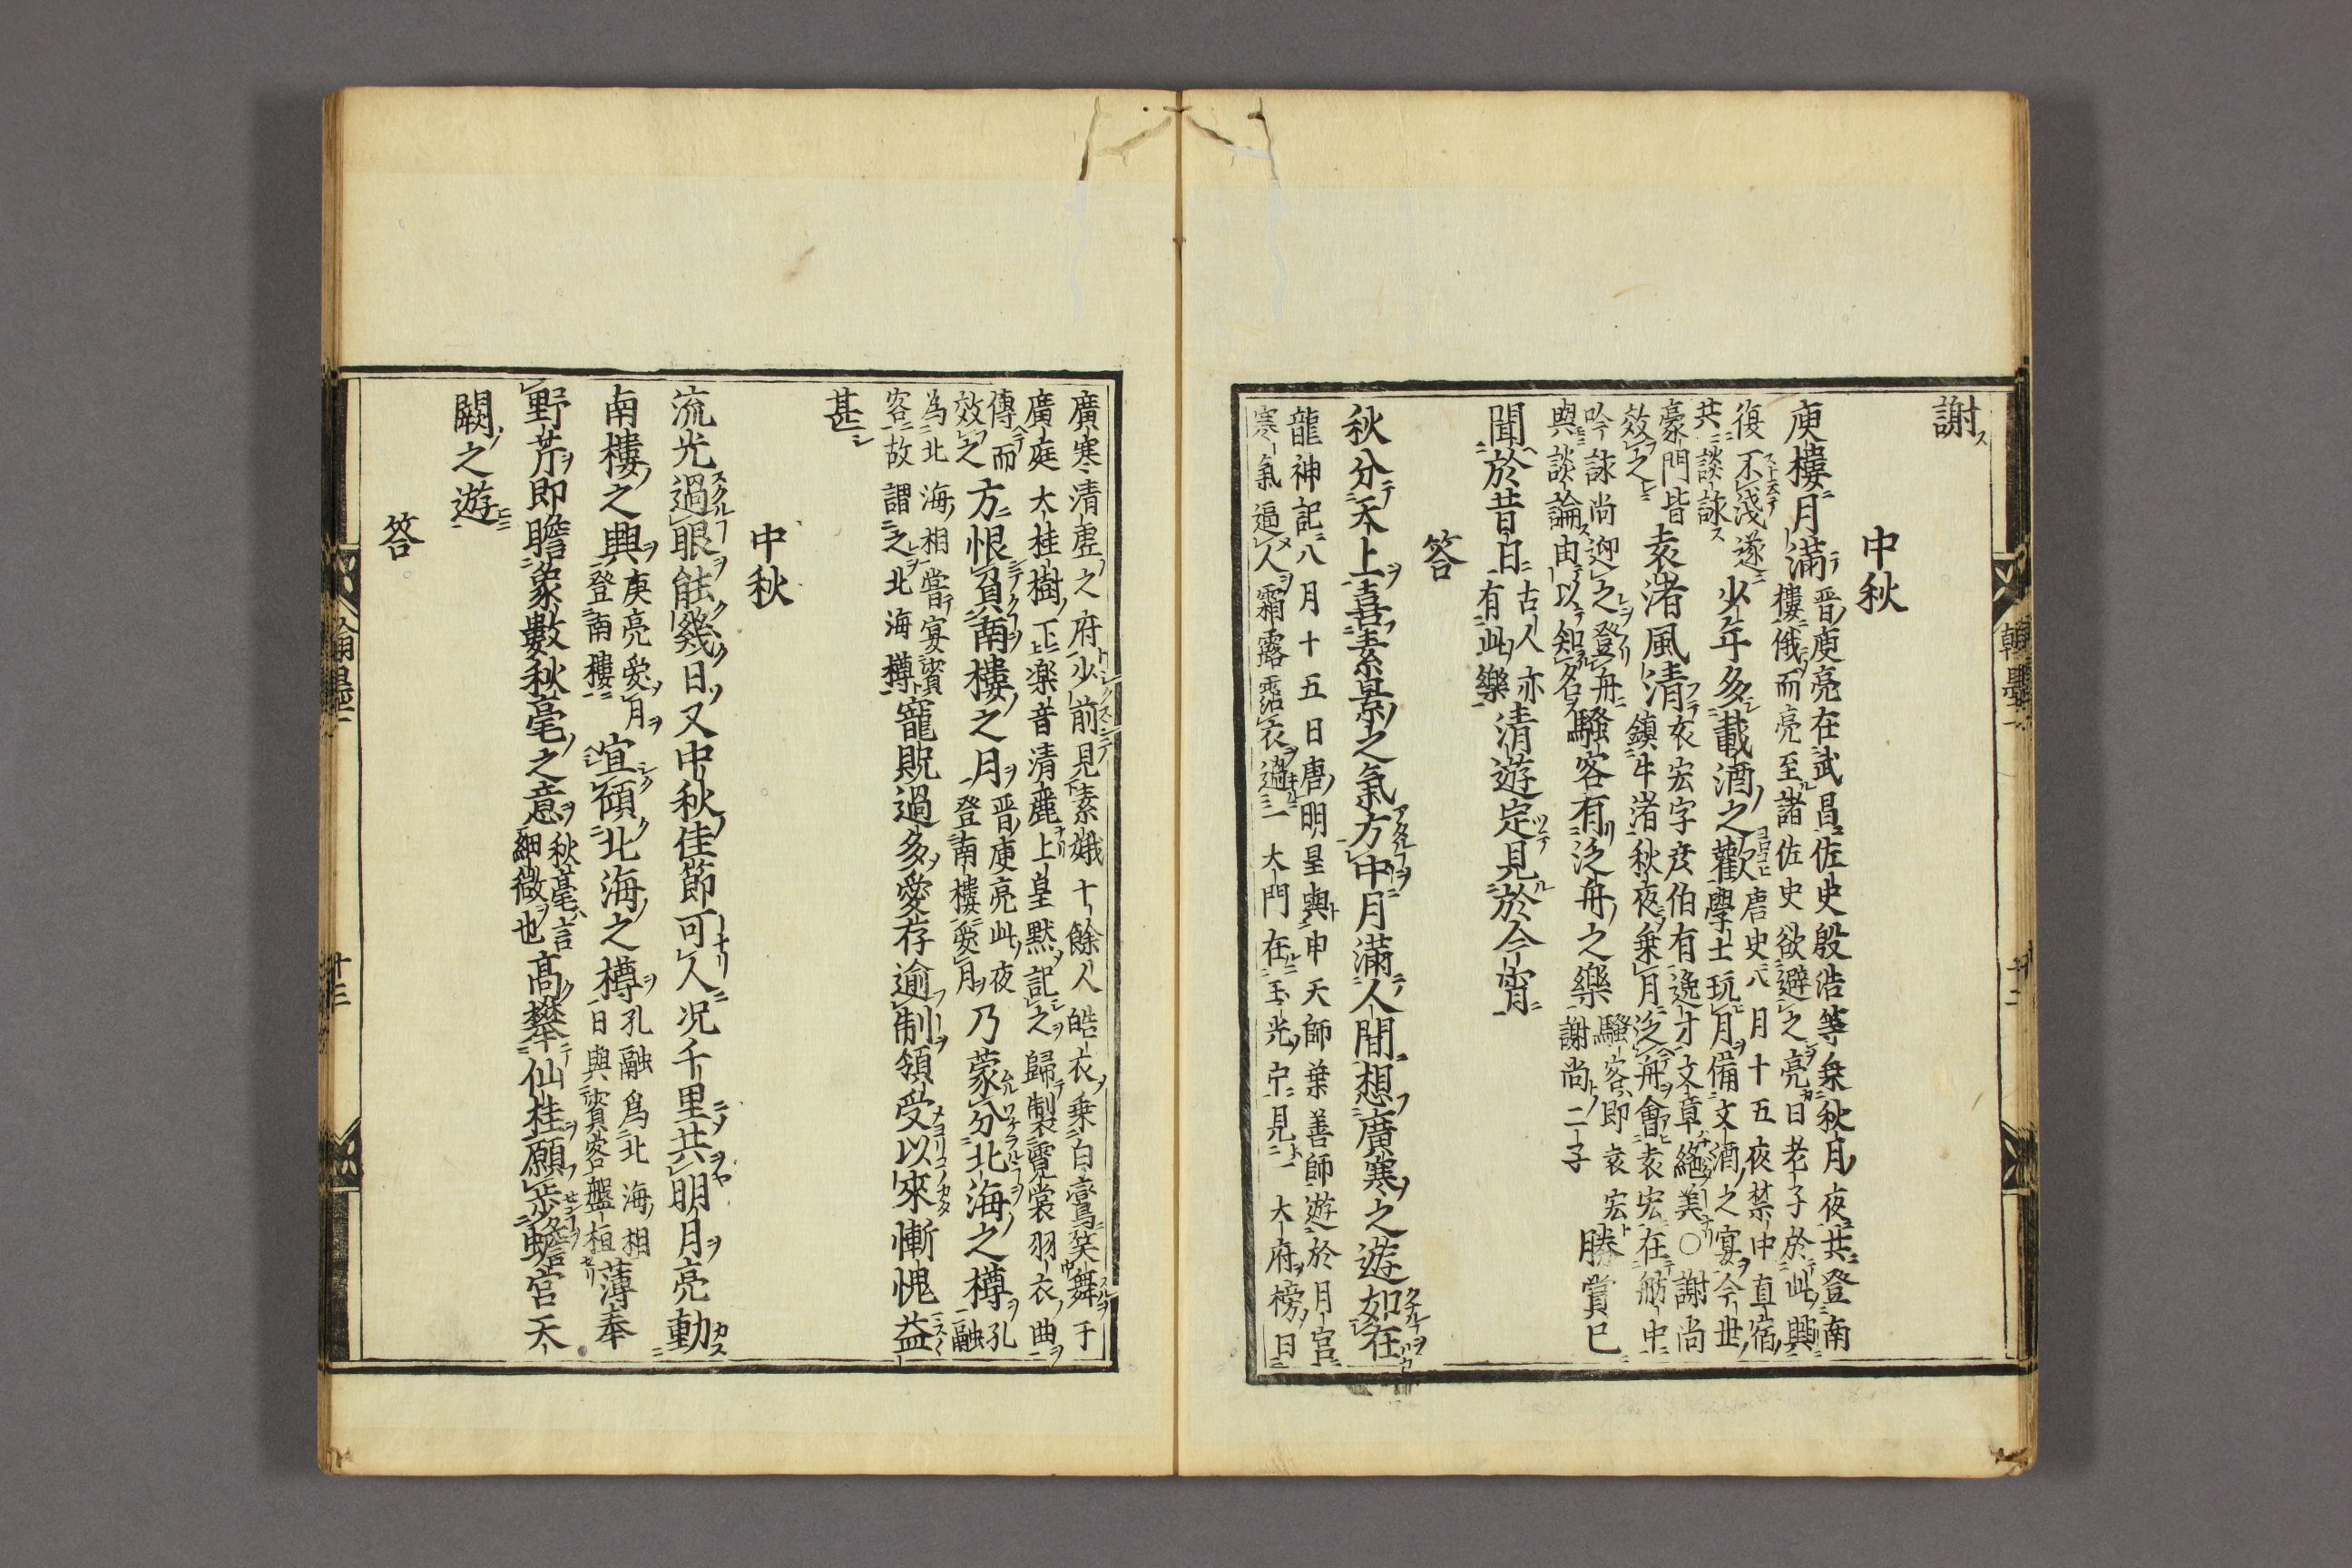 謝ス
中秋
庾樓月滿
晋庾亮在武昌佐史殷浩等乗秋月夜共登南
樓俄而亮至諸佐史欲避之亮曰老子於此興
復不淺遂
共談詠
少年多載酒之歡
唐史八月十五夜禁中直宿
學士玩月備文酒之宴今丗
豪門皆
效之
袁渚風清
袁宏字彦伯有逸才文章絶美〇謝尚
鎮牛渚秋夜乗月泛舟會袁宏在舫中
吟詠尚迎之登舟
與談論由以知名
騷客有泛舟之樂
騷客即袁宏
謝尚二子
勝賞已
聞於昔日
古人亦
有此樂
清遊定見於今宵
答
秋分天上喜素景之氣方中月滿人間想廣寒之遊如在
龍神記八月十五日唐明皇與申天師葉善師遊於月宫
寒氣逼人霜露霑衣過一大門在玉光中見一大府榜曰
廣寒清虚之府少前見素娥十餘人皓衣乗白鸞笑舞于
廣庭大桂樹下楽音清麗上皇默記之歸製霓裳羽衣曲
傳而
效之
方恨負南樓之月
晋庾亮此夜
登南樓愛月
乃蒙分北海之樽
孔
融
為北海相嘗宴賓
客故謂之北海樽
寵貺過多愛存逾制領受以來慚愧益
甚
中秋
流光過眼能幾日又中秋佳節可人况千里共明月亮動
南樓之興
庾亮愛月
登南樓
宜傾北海之樽
孔融爲北海相
日與賓客盤桓
薄奉
野芹即瞻象數秋毫之意
秋毫言
細微也
髙攀仙桂願歩蟾宫天
闕之遊
答
翰墨
十二
翰墨
十三